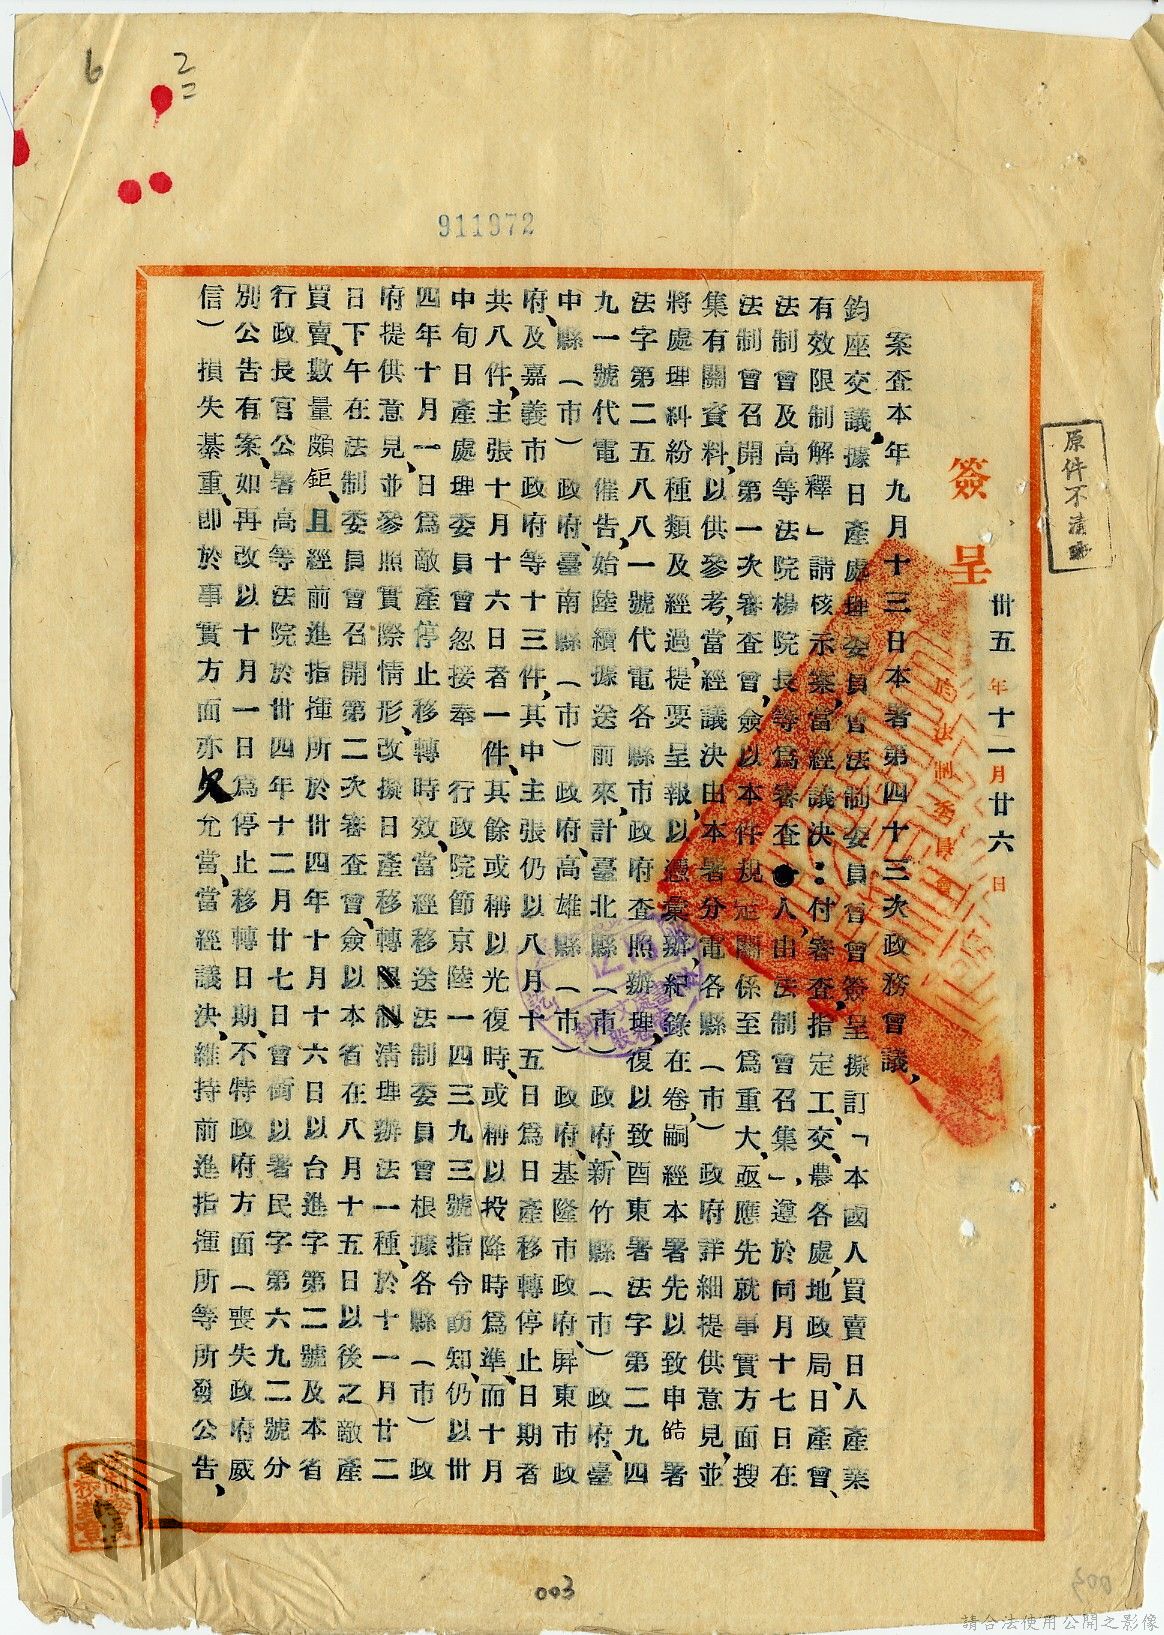 6
2
911972
原件不清晰
簽呈
卅五年十一月廿六日
案查本年九月十三日本署第四十三次政務會議、
鈞座交議、據日產處理委員會法制委員會會簽、呈擬訂「本國人買賣日人產業
有效限制解釋」請核示案、當經議決：付審查、指定工、交、農各處、地政局、日產會、
法制會及高等法院楊院長等為審查人、由法制會召集」、遵於同月十七日在
法制會召開第一次審查會、僉以本件規定關係至為重大、亟應先就事實方面搜
集有關資料、以供參考、當經議決由本署分電各縣（市）政府詳細提供意見、並
將處理糾紛種類及經過、提要呈報、以憑彙辦、紀錄在卷、嗣經本署先以致申皓署
法字第二五八八一號代電各縣市政府查照辦理、復以致酉東署法字第二九四
九一號代電催告、始陸續據送前來、計臺北縣（市）政府、新竹縣（市）政府、臺
中縣（市）政府、臺南縣（市）政府、高雄縣（市）政府、基隆市政府、屏東市政
府、及嘉義市政府等十三件、其中主張仍以八月十五日為日產移轉停止日期者
共八件、主張十月十六日者一件、其餘或稱以光復時、或稱以投降時為準、而十月
中旬日產處理委員會忽接奉　行政院節京陸一四三九三號指令訪知、仍以卅
四年十月一日為敵產停止移轉時效、當經移送法制委員會根據各縣（市）政
府提供意見、並參照實際情形、改擬日產移轉限制清理辦法一種、於十一月廿二
日下午在法制委員會召開第二次審查會、僉以本省在八月十五日以後之敵產
買賣、數量頗鉅、且經前進指揮所於卅四年十月十六日以台進字第二號及本省
行政長官公署高等法院於卅四年十二月廿七日會銜以署民字第六九二號分
別公告有案、如再改以十月一日為停止移轉日期、不特政府方面（喪失政府威
信）損失綦重、即於事實方面亦欠允當、當經議決、維持前進指揮所等所發公告、
003
請合法使用公開之影像